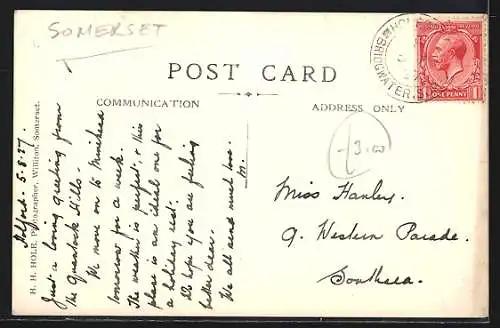 SOMERSET
POST CARD
COMMUNICATION
ADDRESS ONLY
HOL
BRIDGWATER. S
ONE PENNY
1
-/3.00
H. H. HOLE, Photographer, Williton, Somerset.
Holford. 5.8.27.
Just a loving greeting from
The Quantock Hills.
We move on to Minehead
tomorrow for a week.
The weather is perfect, & this
place is an ideal one for
a holiday rest.
We hope you are feeling
better dear.
We all send much love.
M.
Miss Hanley.
9. Western Parade.
Southsea.